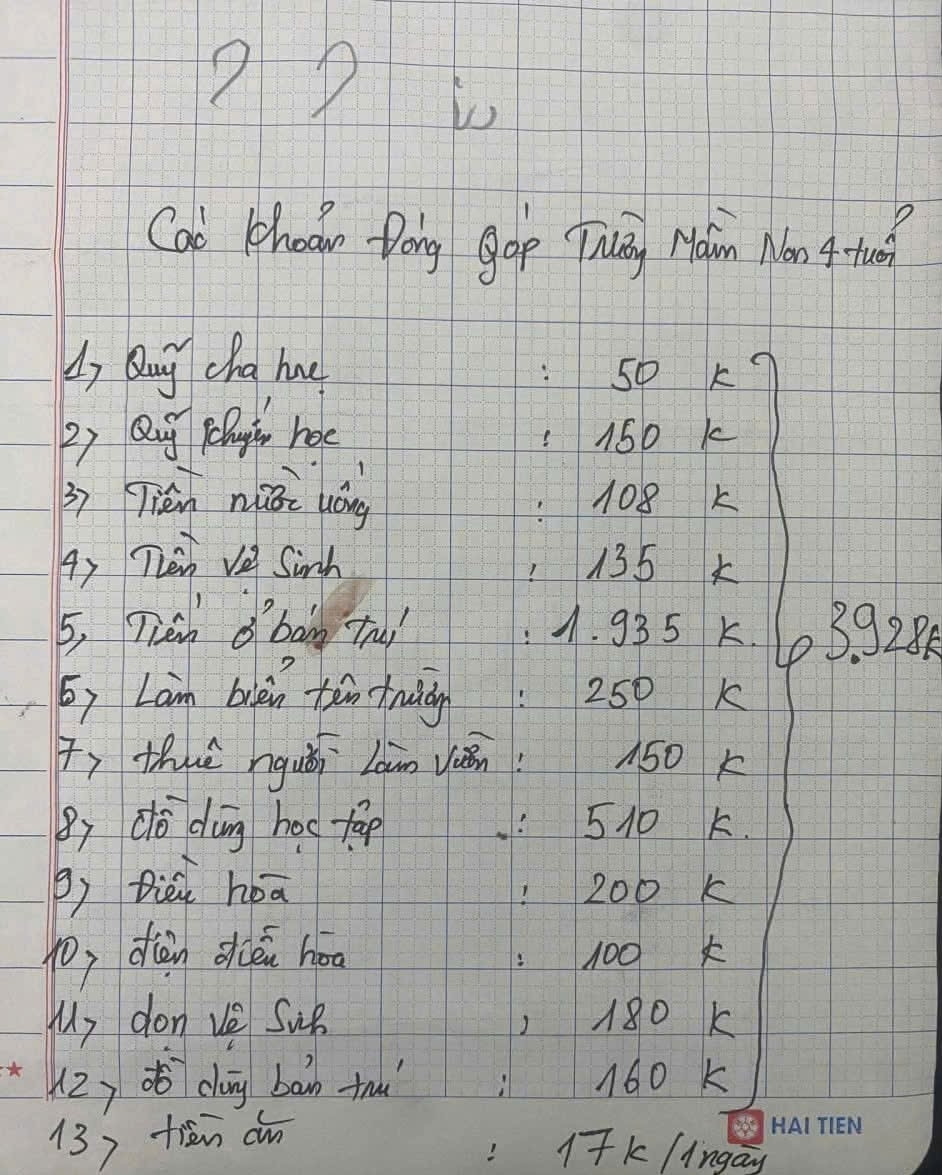 Các khoản Đóng góp Trường Mầm Non 4 tuổi
1, Quỹ cha mẹ : 50 K
2, Quỹ khuyến học : 150 K
3, Tiền nước uống : 108 K
4, Tiền vệ sinh : 135 K
5, Tiền ở bán trú : 1.935 K. 3.928K
6, Làm biển tên trường : 250 K
7, thuê người Làm vườn : 150 K
8, đồ dùng học tập : 510 K.
9, Điều hòa : 200 K
10, điện điều hòa : 100 K
11, dọn vệ sinh : 180 K
12, đồ dùng bán trú : 160 K
HAI TIEN
13, tiền ăn : 17K/1 ngày